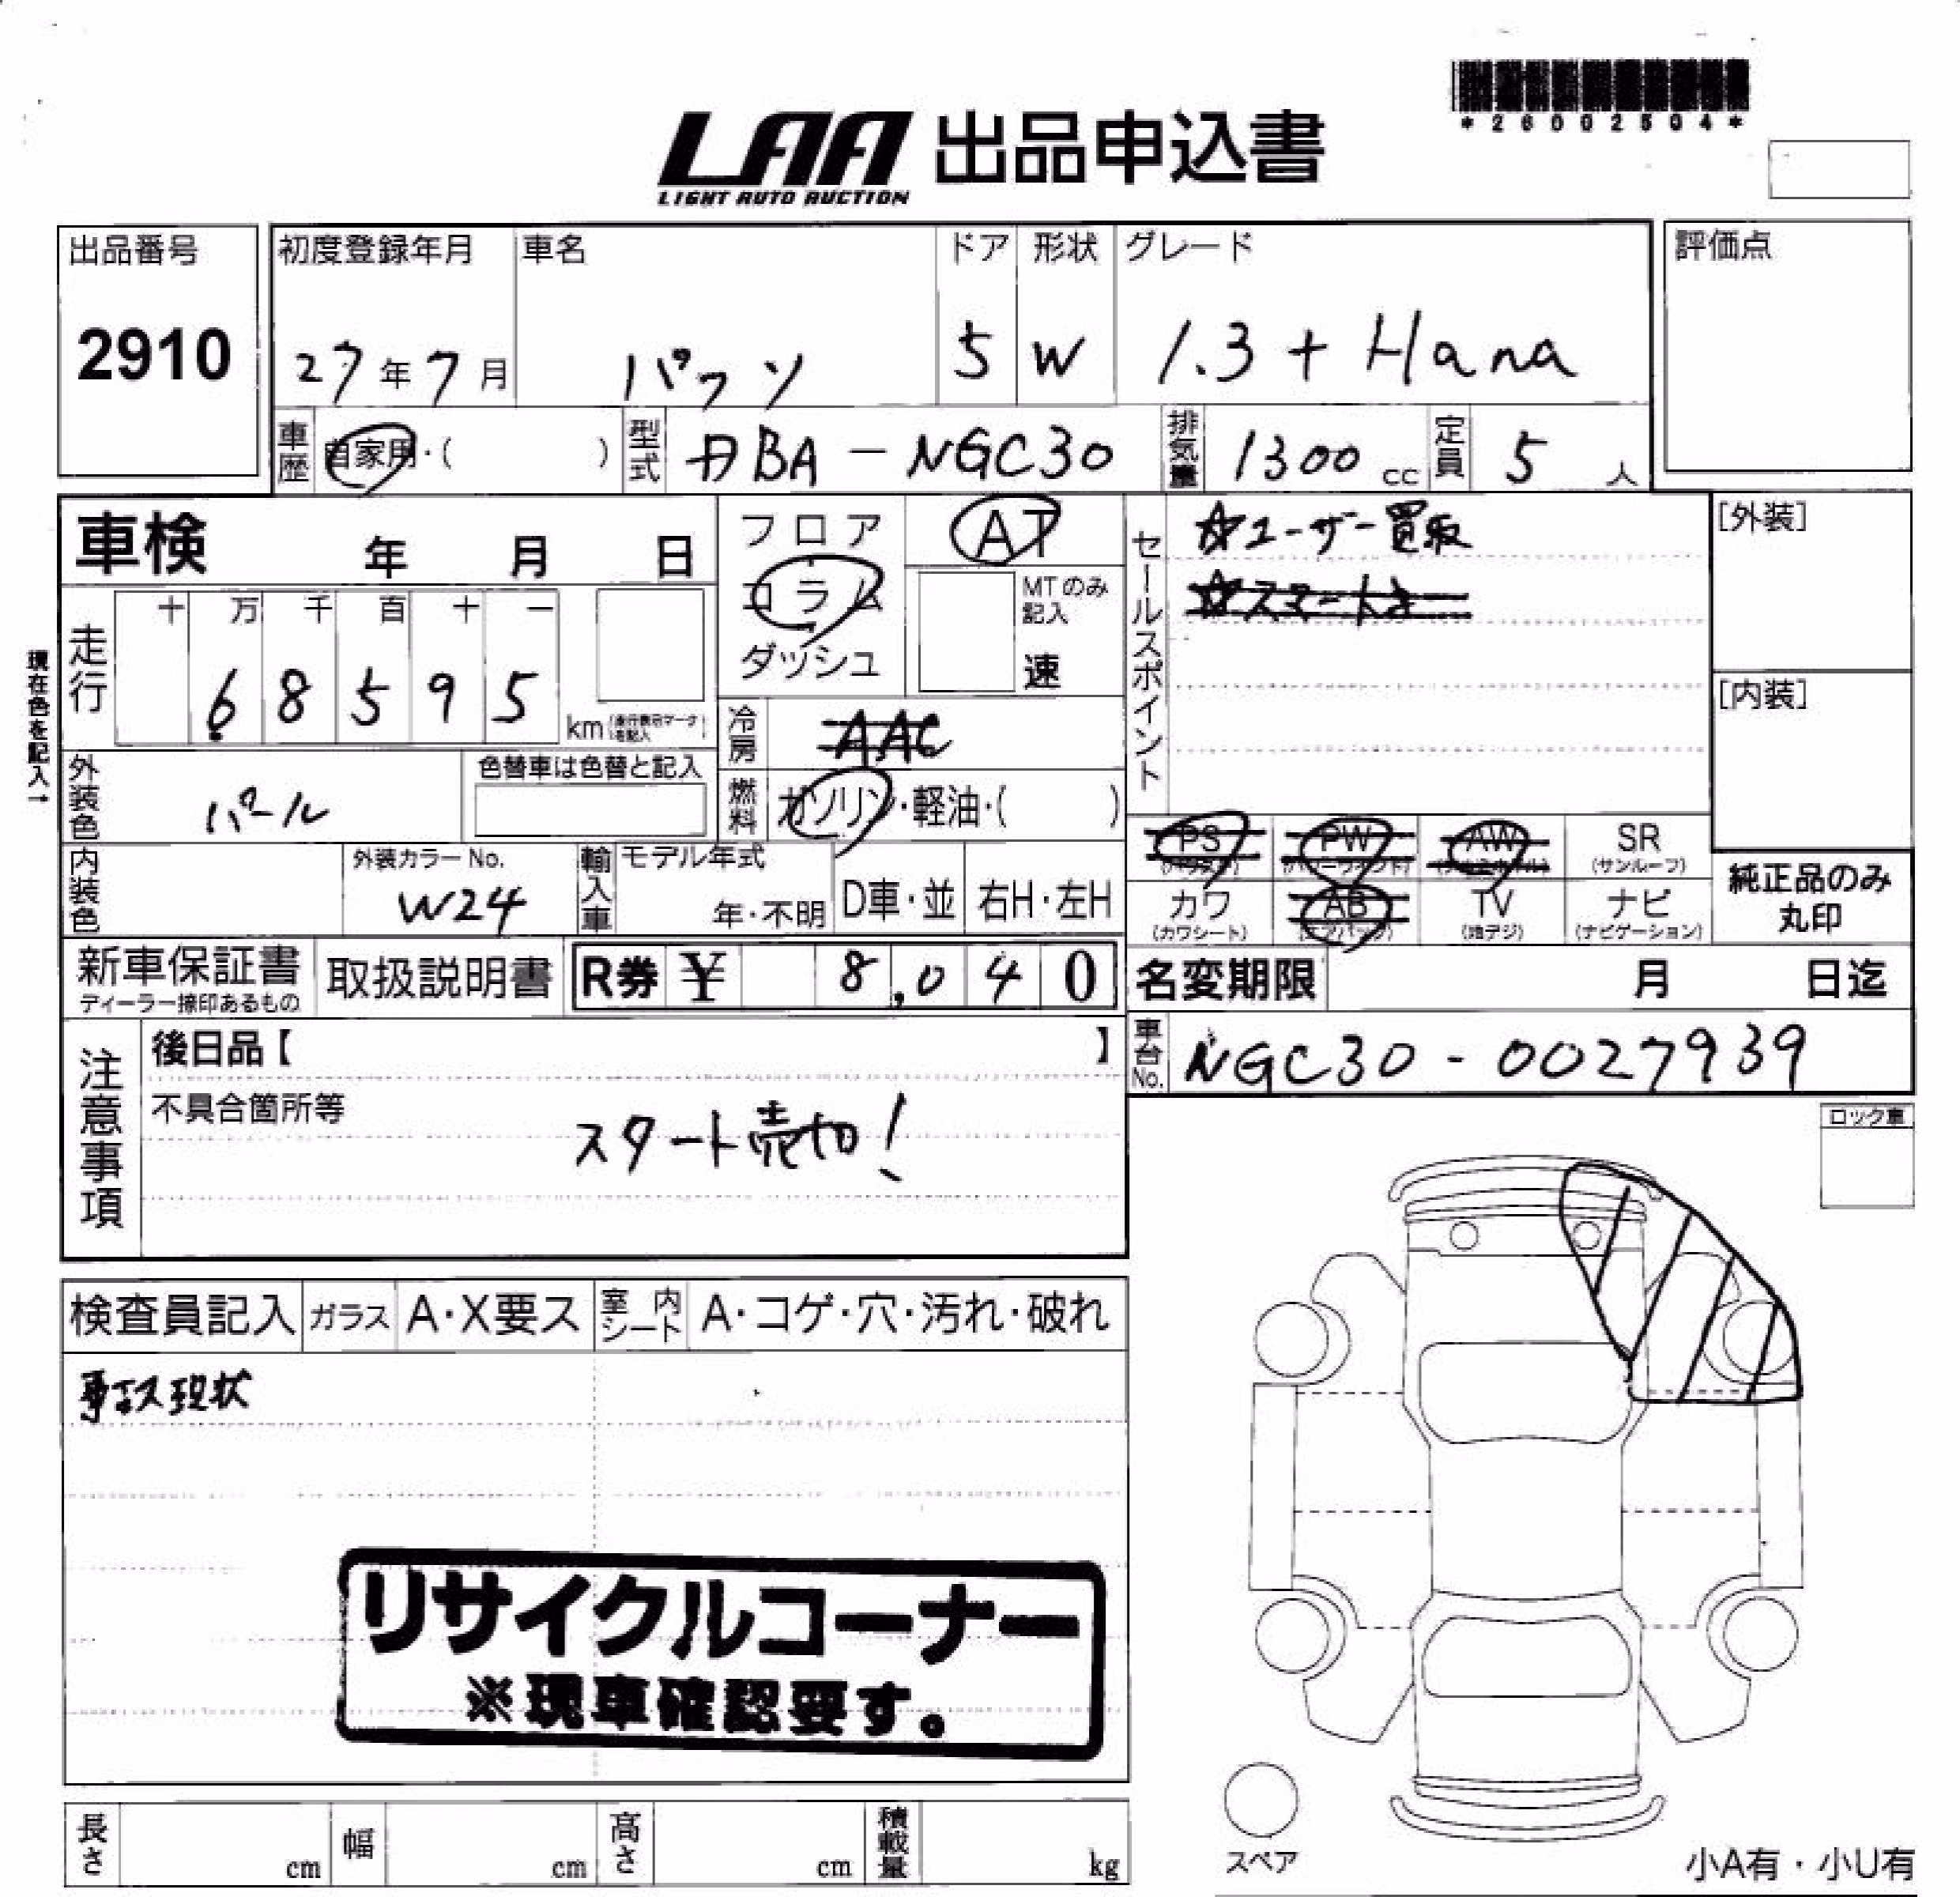 *26002504*
LAA 出品申込書
LIGHT AUTO AUCTION
出品番号 初度登録年月 車名 ドア 形状 グレード 評価点
2910 27年7月 パッソ 5 W 1.3 + Hana
車歴 自家用・( ) 型式 DBA-NGC30 排気量 1300 cc 定員 5 人
車検 年 月 日 フロア AT セールスポイント ☆ユーザー買取 [外装]
コラム MTのみ記入 ☆スマートキー
ダッシュ 速
現在色を記入→
走行 十 万 千 百 十 一
68595 km (走行表示マークを記入) [内装]
冷房 AAC
外装色 パール 色替車は色替と記入 燃料 ガソリン・軽油・( )
PS PW AW SR
(サンルーフ)
内装色 外装カラーNo. W24 輸入車 モデル年式 年・不明 D車・並 右H・左H
カワ AB TV ナビ 純正品のみ丸印
(カワシート) (エアバッグ) (地デジ) (ナビゲーション)
新車保証書 取扱説明書 R券 ¥ 8,040 名変期限 月 日迄
ディーラー捺印あるもの
注意事項 後日品【 】 車台No. NGC30-0027939
不具合箇所等 スタート売切!
ロック車
検査員記入 ガラス A・X要ス 室内シート A・コゲ・穴・汚れ・破れ
事故現状
リサイクルコーナー
※現車確認要す。
長さ cm 幅 cm 高さ cm 積載量 kg
スペア 小A有・小U有